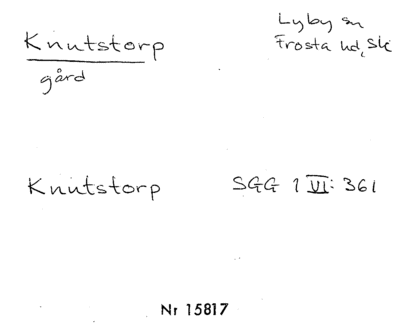 Knutstorp
gård
Lyby sn
Frosta hd, Sk
Knutstorp SGG 1 VI: 361
Nr 15817